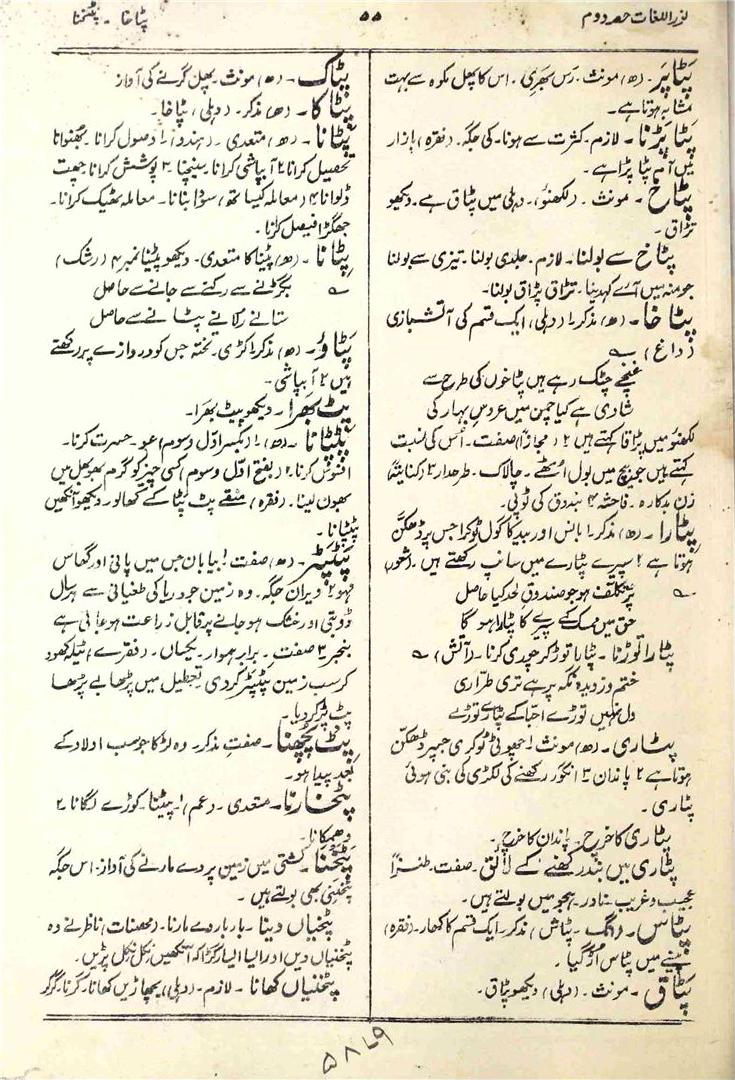 نور اللغات حصہ دوم
۵۵
پٹاخا ۔ پٹخنا
پٹاپَر۔ (ھ) مونث۔ رَس بھَری۔ اس کا پھل مکوہ سے بہت
مشابہ ہوتا ہے۔
پٹا پڑنا۔ لازم۔ کثرت سے ہونا۔ کی جگہ۔ (فقرہ) بازار
میں آم پٹا پڑا ہے۔
پٹاخ۔ مونث۔ (لکھنؤ)۔ دہلی میں پٹاق ہے۔ دیکھو
تڑاق۔
پٹاخ سے بولنا۔ لازم۔ جلدی بولنا۔ تیزی سے بولنا
جو منہ میں آئے کہدینا۔ تڑاق پڑاق بولنا۔
پٹاخا۔ (ھ) مذکر۔ ا (دہلی) ایک قسم کی آتشبازی
(داغ) ؎
غنچے چٹک رہے ہیں پٹاخوں کی طرح سے
شادی ہے کیا چمن میں عروسِ بہار کی
لکھنؤ میں پڑاقا کہتے ہیں ۲ (مجازاً) صفت۔ اُس کی نسبت
کہتے ہیں جو بیچ میں بول اُٹھے۔ چالاک۔ طرحدار ۳ (کنایتہً)
زن بدکارہ۔ فاحشہ ۴ بندوق کی ٹوپی۔
پٹارا۔ (ھ) مذکر۔ ا بانس اور بید کا گول ٹوکرا جس پر ڈھکّن
ہوتا ہے ۲ سپیرے پٹارے میں سانپ رکھتے ہیں۔ (شعور)
؎ پُرتکلّف ہو جو صندوقِ لحد کیا حاصل
حق میں مردے کے سپیرے کا پٹارا ہوگا
پٹارا توڑنا۔ پٹارا توڑ کر چوری کرنا۔ (آتش) ؎
ختم دزدیدہ نگہ پر ہے تری طرّاری
دل نہیں توڑے احبّا کے پٹارے توڑے
پٹاری۔ (ھ) مونث۔ ا چھوٹی ٹوکری جسپر ڈھکّن
ہوتا ہے ۲ پاندان ۳ انگور رکھنے کی لکڑی کی بنی ہوئی
پٹاری۔
پٹاری کا خرچ۔ پاندان کا خرچ۔
پٹاری میں بند رکھنے کے لائق۔ صفت۔ طنزاً
عجیب و غریب۔ نادر۔ ہجو میں بولتے ہیں۔
پٹاس۔ (انگ۔ پٹاش) مذکر۔ ایک قسم کا کھار۔ (فقرہ)
پسینے میں پٹاس اُڑ گیا۔
پٹاق۔ مونث۔ (دہلی) دیکھو پٹاق۔
پٹاک۔ (ھ) مونث۔ پھل گرنے کی آواز
پٹاکا۔ (ھ) مذکر۔ (دہلی) پٹاخا۔
پٹانا۔ (ھ) متعدی۔ (ہندو) ا وصول کرانا۔ بھنوانا
تحصیل کرانا ۲ آبپاشی کرانا۔ سینچنا ۳ پوشش کرانا چھت
ڈلوانا ۴ (معاملہ کیساتھ) سودا بنانا۔ معاملہ ٹھیک کرانا۔
جھگڑا فیصل کرنا۔
پٹانا۔ (ھ) پیٹنا کا متعدی۔ دیکھو پیٹنا نمبر ۴ (رشک)
؎ بگڑنے سے رکنے سے جانے سے حاصل
ستانے رلانے پٹانے سے حاصل
پٹاؤ۔ (ھ) مذکر۔ ا کڑی۔ تختہ جس کو دروازے پر رکھتے
ہیں ۲ آبپاشی۔
پٹ بھرا۔ دیکھو پیٹ بھرا۔
پٹپٹانا۔ (ھ) ا (بکسر اوّل و سوم) عو۔ حسرت کرنا۔
افسوس کرنا۔ ۲ (بفتح اوّل و سوم) کسی چیز کو گرم بھوبھل میں
بھون لینا۔ (فقرہ) منقے پٹ پٹا کے کھا لو۔ دیکھو آنکھیں
پٹپٹانا۔
پٹپٹر۔ (ھ) صفت ا بیابان جس میں پانی اور گھاس
نہو ۲ ویران جگہ۔ وہ زمین جو دریا کی طغیانی سے ہر سال
ڈوبتی اور خشک ہو جانے پر قابل زراعت ہو جاتی ہے
بنجر ۳ صفت۔ برابر ہموار۔ یکساں۔ (فقرے) ٹیلہ کھود
کر سب زمین پٹپٹر کر دی تعطیل میں پڑھا بے پڑھا
پٹ پٹر کر دیا۔
پٹ پچھنا۔ صفت مذکر۔ وہ لڑکا جو سب اولاد کے
بعد پیدا ہو۔
پٹخارنا۔ متعدی۔ (عم) ا پیٹنا۔ کوڑے لگانا ۲
دھمکانا۔
پٹخنا۔ کشتی میں زمین پر دے مارنے کی آواز۔ اس جگہ
پٹخنی بھی بولتے ہیں۔
پٹخنیاں دینا۔ بار بار دے مارنا۔ (محصنات) ناظر نے وہ
پٹخنیاں دیں اور ایسا ایسا رگڑا کہ آنکھیں نکل نکل پڑیں۔
پٹخنیاں کھانا۔ لازم۔ (دہلی) پچھاڑیں کھانا۔ گرنا۔ گر گر